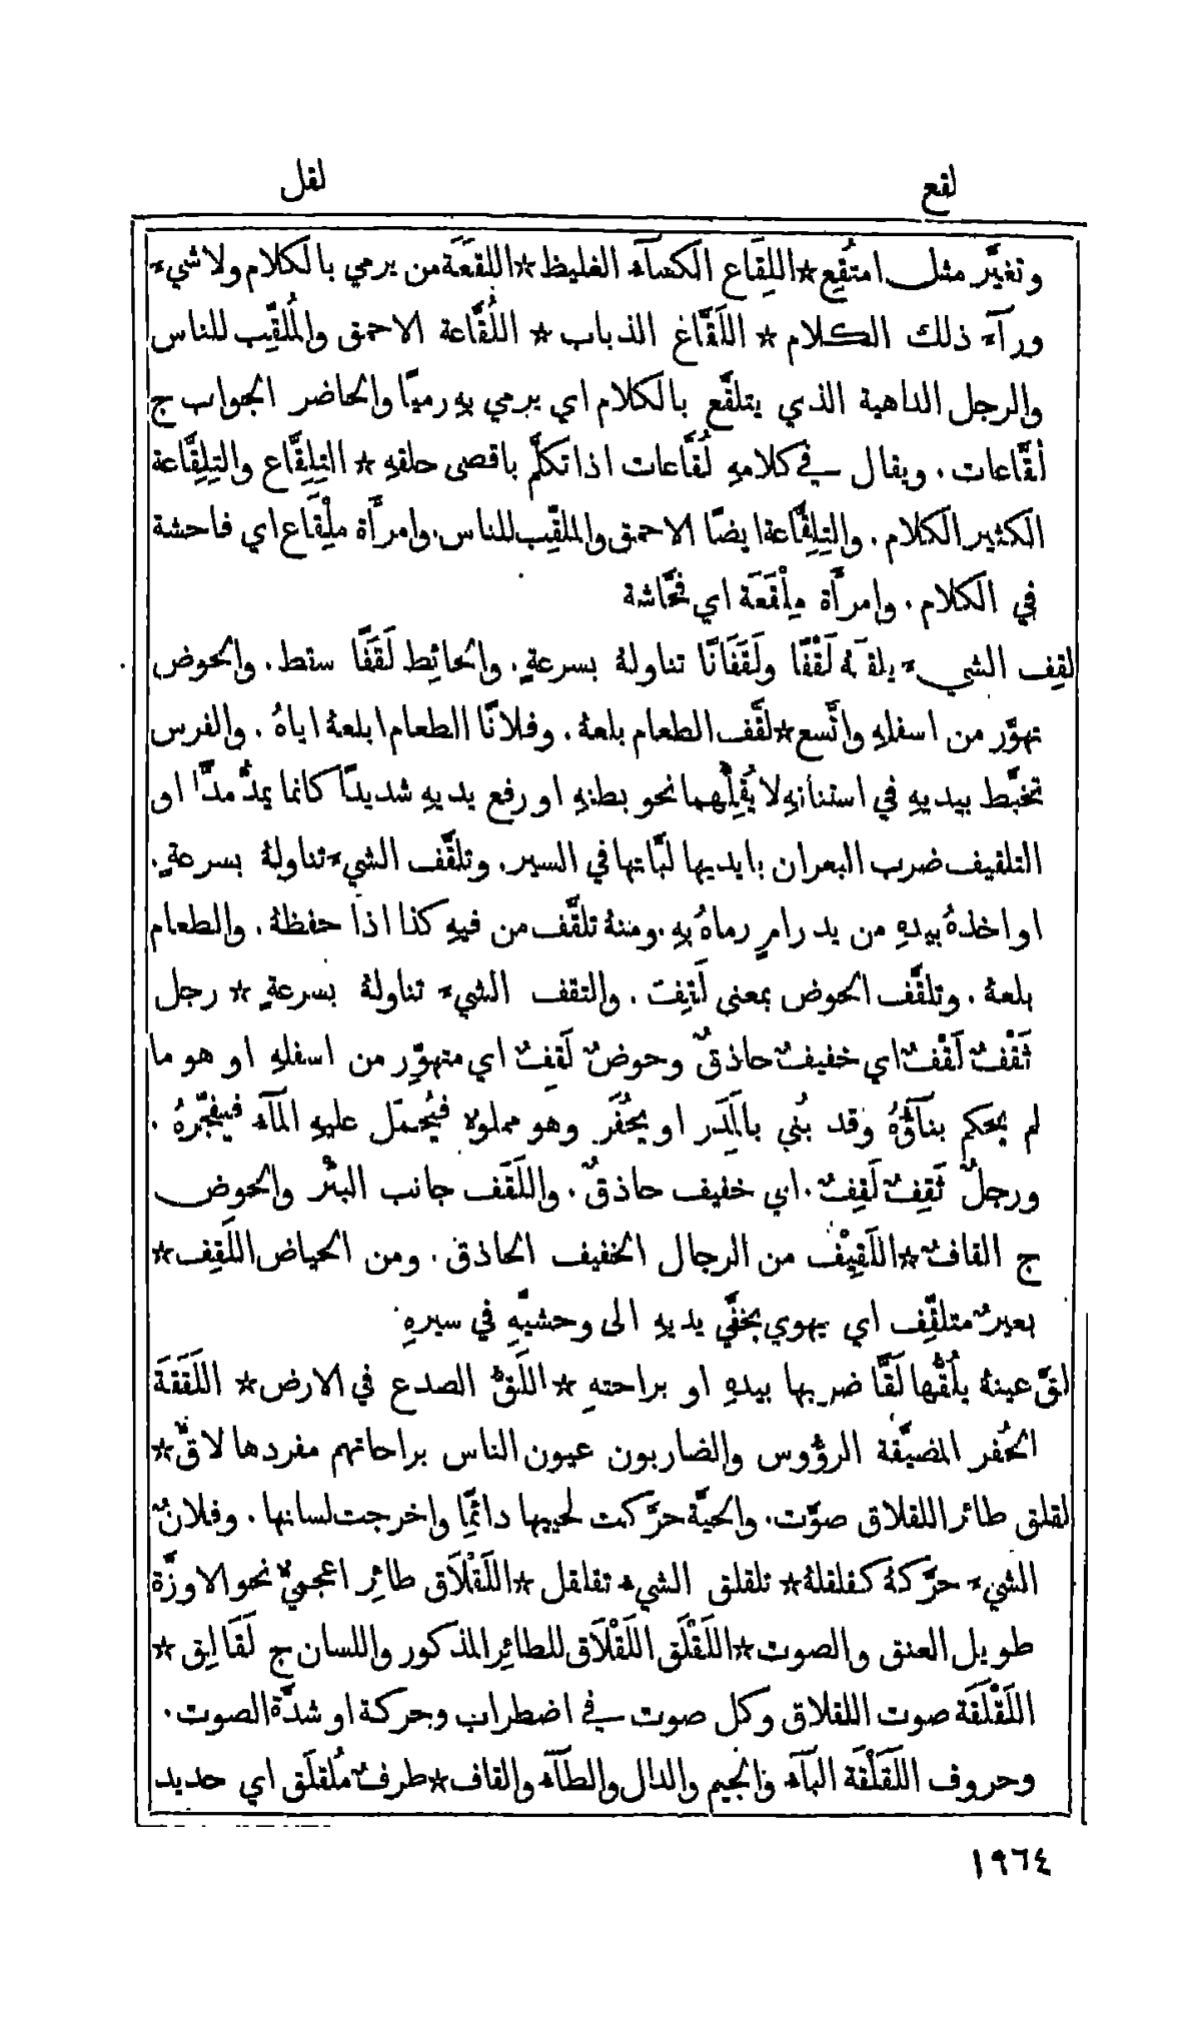 لقع
لقل
وتغيَّر مثل امتُقِع * اللِقَاع الكسآء الغليظ * اللقَعَة من يرمي بالكلام ولا شيء
ورآء ذلك الكلام * اللَقَّاع الذباب * اللُقَّاعة الاحمق والمُلَقِّب للناس
والرجل الداهية الذي يتلقَّع بالكلام اي يرمي بهِ رميًا والحاضر الجواب ج
لُقَّاعات. ويقال في كلامهِ لُقَّاعات اذا تكلَّم باقصى حلقهِ * التِلِقَّاع والتِلِقَّاعة
الكثير الكلام. والتِلِقَّاعة ايضًا الاحمق والملقِّب للناس. وامرأَة مِلْقَاع اي فاحشة
في الكلام. وامرأَة مِلْقَعَة اي فحَّاشة
لقِف الشيء يلقفهُ لَقْفًا ولَقَفَانًا تناولهُ بسرعةٍ. والحائِط لَقَفًا سقط. والحوض
تهوَّر من اسفلهِ واتَّسع * لقَّف الطعام بلعهُ. وفلانًا الطعام ابلعهُ اياهُ. والفرس
تخبَّط بيديهِ في استنانهِ لا يُقِلُّهما نحو بطنهِ او رفع يديهِ شديدًا كانما يمدُّ مدًّا او
التلقيف ضرب البعران بايديها لبَّاتها في السير. وتلقَّف الشيء تناولهُ بسرعةٍ.
او اخذهُ بيدهِ من يد رامٍ رماهُ بهِ. ومنهُ تلقَّف من فيهِ كذا اذا حفظهُ. والطعام
بلعهُ. وتلقَّف الحوض بمعنى لَقِفَ. والتقف الشيء تناولهُ بسرعةٍ * رجل
ثَقْفٌ لَقْفٌ اي خفيفٌ حاذقٌ وحوضٌ لَقِفٌ اي متهوِّر من اسفلهِ او هو ما
لم يحكم بنآؤُهُ وقد بُني بالمَدَر او يُحْفَر وهو مملوء فيُحمَل عليهِ المآء فيفجّرهُ.
ورجلٌ ثَقِفٌ لَقِفٌ. اي خفيف حاذقٌ. واللَقَف جانب البئْر والحوض
ج القافٌ * اللَقِيْف من الرجال الخفيف الحاذق. ومن الحياض اللَقِف *
بعيرٌ متلقِّف اي يهوي بخُفَّي يديهِ الى وحشيّهِ في سيرهِ
لقَّ عينهُ يلُقُّها لَقًّا ضربها بيدهِ او براحتهِ * اللَقُّ الصدع في الارض * اللَقَقَة
الحُفر المضيَّقة الرؤُوس والضاربون عيون الناس براحاتهم مفردها لاقٌّ *
لقلق طائر اللقلاق صوَّت. والحيَّة حرَّكت لحييها دائمًا واخرجت لسانها. وفلانٌ
الشيء حرَّكهُ كقلقلهُ * تلقلق الشيء تقلقل * اللَقْلَاق طائِر اعجميٌّ نحو الاوزَّة
طويل العنق والصوت * اللَقْلَق اللَقْلَاق للطائِر المذكور واللسان ج لَقَالِق *
اللَقْلَقَة صوت اللقلاق وكل صوت في اضطراب وحركة او شدَّة الصوت.
وحروف اللَقْلَقة البآء والجيم والدال والطآء والقاف * طرفٌ مُلقلَق اي حديد
١٩٦٤